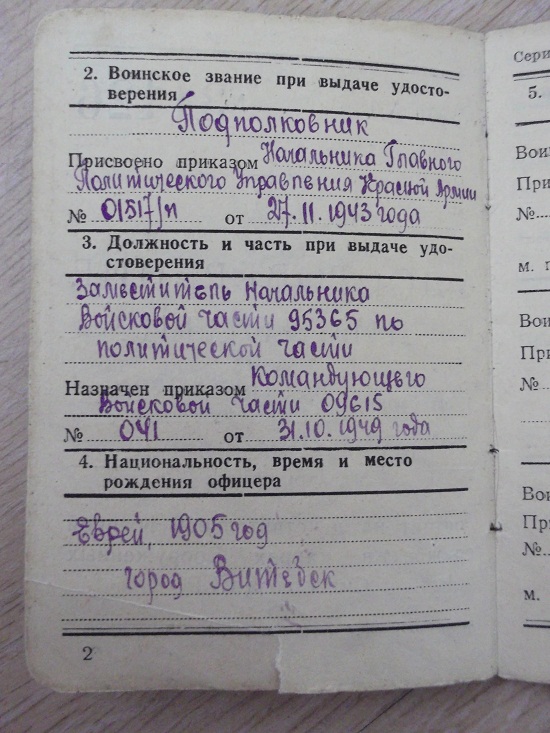 2. Воинское звание при выдаче удосто-
верения
Подполковник
Присвоено приказом Начальника Главного
Политического Управления Красной Армии
№ 01517/п от 27.11.1943 года
3. Должность и часть при выдаче удо-
стоверения
Заместитель Начальника
Войсковой части 95365 по
политической части
Назначен приказом Командующего
Войсковой части 09615
№ 041 от 31.10.1949 года
4. Национальность, время и место
рождения офицера
Еврей, 1905 год
город Витебск
2
Сери
5.
Вои
При
№
м. п
Вои
При
№
Вои
Пр
№
м.